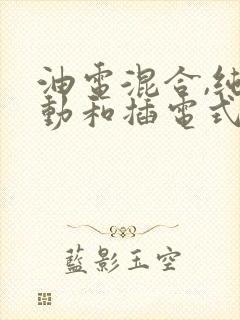 油電混合,純
動和插電式
藍影玉空